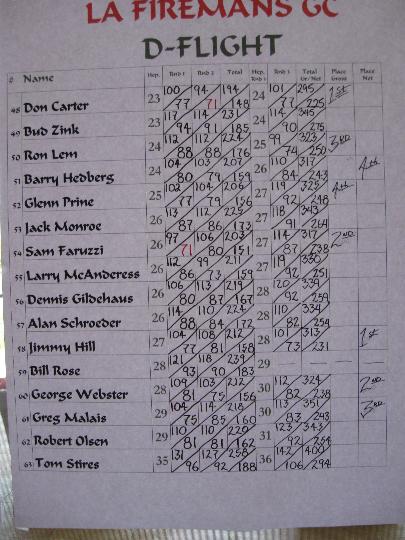 LA FIREMANS GC
D-FLIGHT
# Name Hcp. Rnd 1 Rnd 2 Total Hcp. Rnd 1 Rnd 3 Total Gr/Net Place Gross Place Net
48 Don Carter 23 100/77 94/71 194/148 24 101/77 295/225 1st
49 Bud Zink 23 117/94 114/91 231/185 24 114/90 345/275
50 Ron Lem 24 112/88 112/88 224/176 25 99/74 323/250 3rd
51 Barry Hedberg 24 104/80 103/79 207/159 26 110/84 317/243 4th
52 Glenn Prine 25 102/77 104/79 206/156 27 119/92 325/248 4th
53 Jack Monroe 26 113/87 112/86 225/173 27 118/91 343/264
54 Sam Faruzzi 26 97/71 106/80 203/151 27 114/87 317/238 2nd
55 Larry McAnderess 26 112/86 99/73 211/159 27 119/92 330/251
56 Dennis Gildehaus 26 106/80 113/87 219/167 28 120/92 339/259
57 Alan Schroeder 26 114/88 110/84 224/172 28 110/82 334/254
58 Jimmy Hill 27 104/77 108/81 212/158 28 101/73 313/231 1st
59 Bill Rose 28 121/93 118/90 239/183 29 — —
60 George Webster 28 109/81 103/75 212/156 30 112/82 324/238 2nd
61 Greg Malais 29 104/75 114/85 218/160 30 113/83 351/243 3rd
62 Robert Olsen 29 110/81 110/81 220/162 31 123/92 343/254
63 Tom Stires 35 131/96 127/92 258/188 36 142/106 400/294